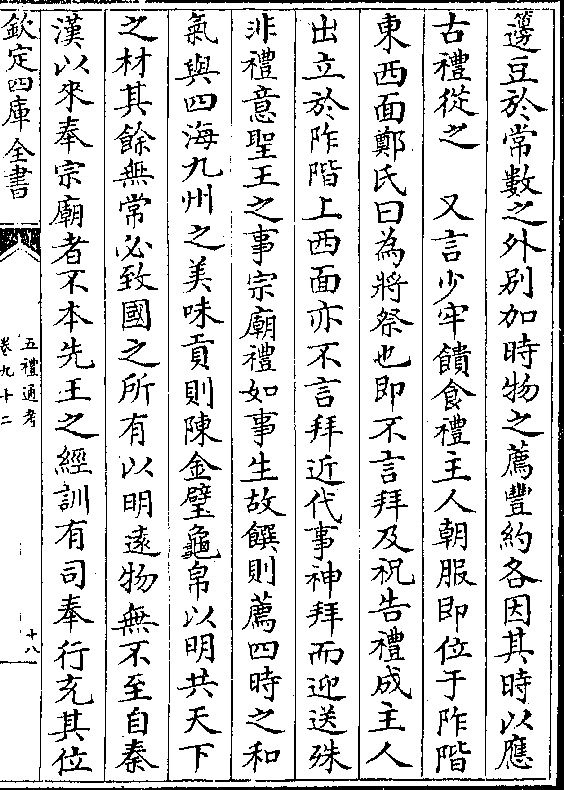 籩豆於常數之外別加時物之薦豐約各因其時以應
古禮從之　又言少牢饋食禮主人朝服即位于阼階
東西面鄭氏曰為將祭也即不言拜及祝告禮成主人
出立於阼階上西面亦不言拜近代事神拜而迎送殊
非禮意聖王之事宗廟禮如事生故饌則薦四時之和
氣與四海九州之美味貢則陳金璧龜帛以明共天下
之材其餘無常必致國之所有以明遠物無不至自秦
漢以來奉宗廟者不本先王之經訓有司奉行充其位
欽定四庫全書
五禮通考
卷九十二
十八